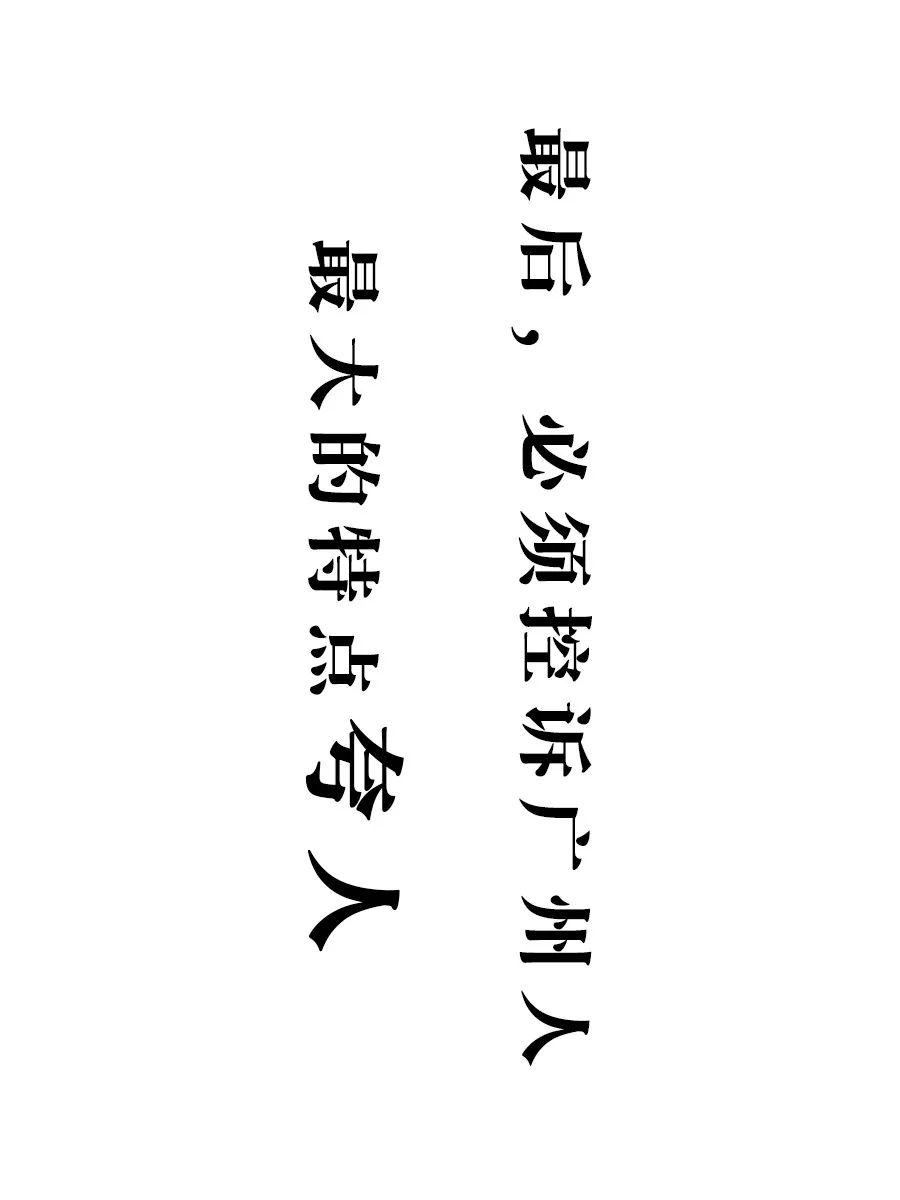 最后，必须控诉广州人
最大的特点夸人